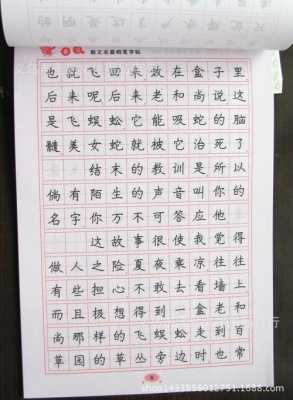 散文名篇钢笔字帖
也就飞回来敛在盒子里
后来呢后来老和尚说这
是飞蜈蚣它能吸蛇的脑
髓美女蛇就被它治死了
结末的教训是所以
倘有陌生的声音叫你的
名字你万不可答应他
这故事很使我觉得
做人之险夏夜乘凉往往
有些担心不敢去看墙上
而且极想得到一盒老和
尚那样的飞蜈蚣走到百
草园的草丛旁边时也常